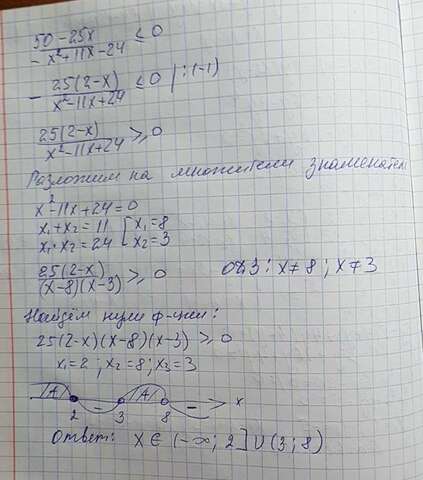 50 - 25x / -x²+11x-24 ≤ 0
- 25(2-x) / x²-11x+24 ≤ 0 | :(-1)
25(2-x) / x²-11x+24 ≥ 0
Разложим на множители знаменатель
x²-11x+24=0
x₁+x₂ = 11 [ x₁=8
x₁·x₂ = 24 [ x₂=3
25(2-x) / (x-8)(x-3) ≥ 0 ОДЗ: x≠8; x≠3
Найдём нули ф-ции:
25(2-x)(x-8)(x-3) ≥ 0
x₁=2; x₂=8; x₃=3
+ - + - x
2 3 8
Ответ: x ∈ (-∞; 2] U (3; 8)